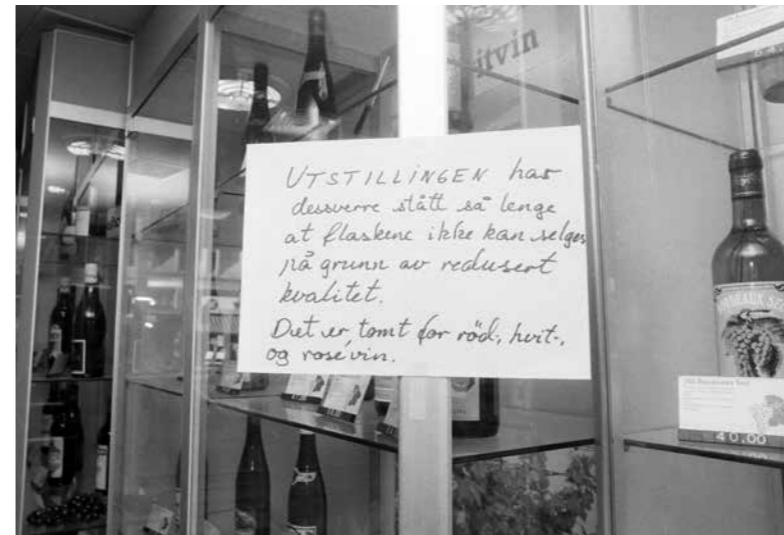 itvin
UTSTILLINGEN har
dessverre stått så lenge
at flaskene ikke kan selges
på grunn av redusert
kvalitet.
Det er tomt for röd-, hvit-,
og rosévin.
40.00